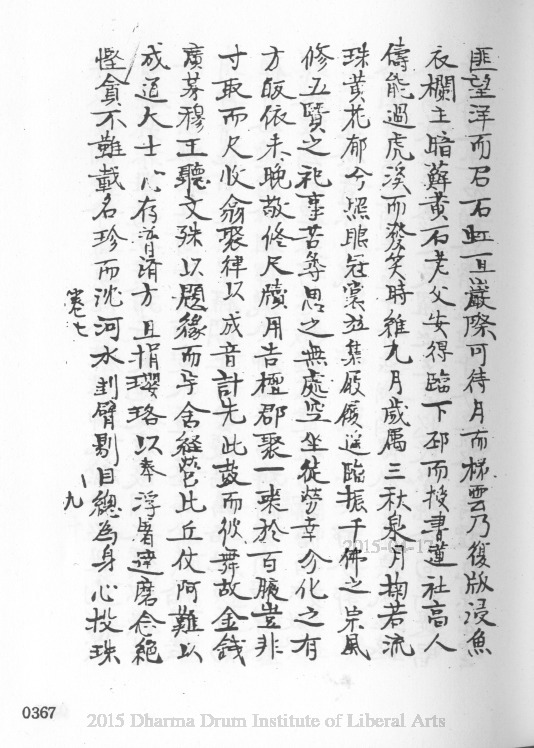 匪望洋而召石虹亘巖際可待月而梯雲乃復版浸魚
衣欄主暗蘚黃石老父安得臨下邳而授書蓮社高人
儔能過虎溪而發笑時維九月歲屬三秋泉月掬若流
珠黃花郁兮照眼冠裳並集屐履遙臨振千佛之崇風
修五賢之祀事苦尋思之無處空坐徒勞幸分化之有
方皈依未晚敬修尺牘用告檀郡聚一裘於百腋豈非
寸取而尺收翕聚律以成音計先此鼓而彼舞故金錢
廣募穆王聽文殊以題緣而孚舍經營比丘仗阿難以
成道大士心存普濟方且捐瓔珞以奉浮屠達磨念絕
慳貪不難載名珍而沈河水剉臂剔目總為身心投珠
卷七
九
0367
2015-04-17
2015 Dharma Drum Institute of Liberal Arts